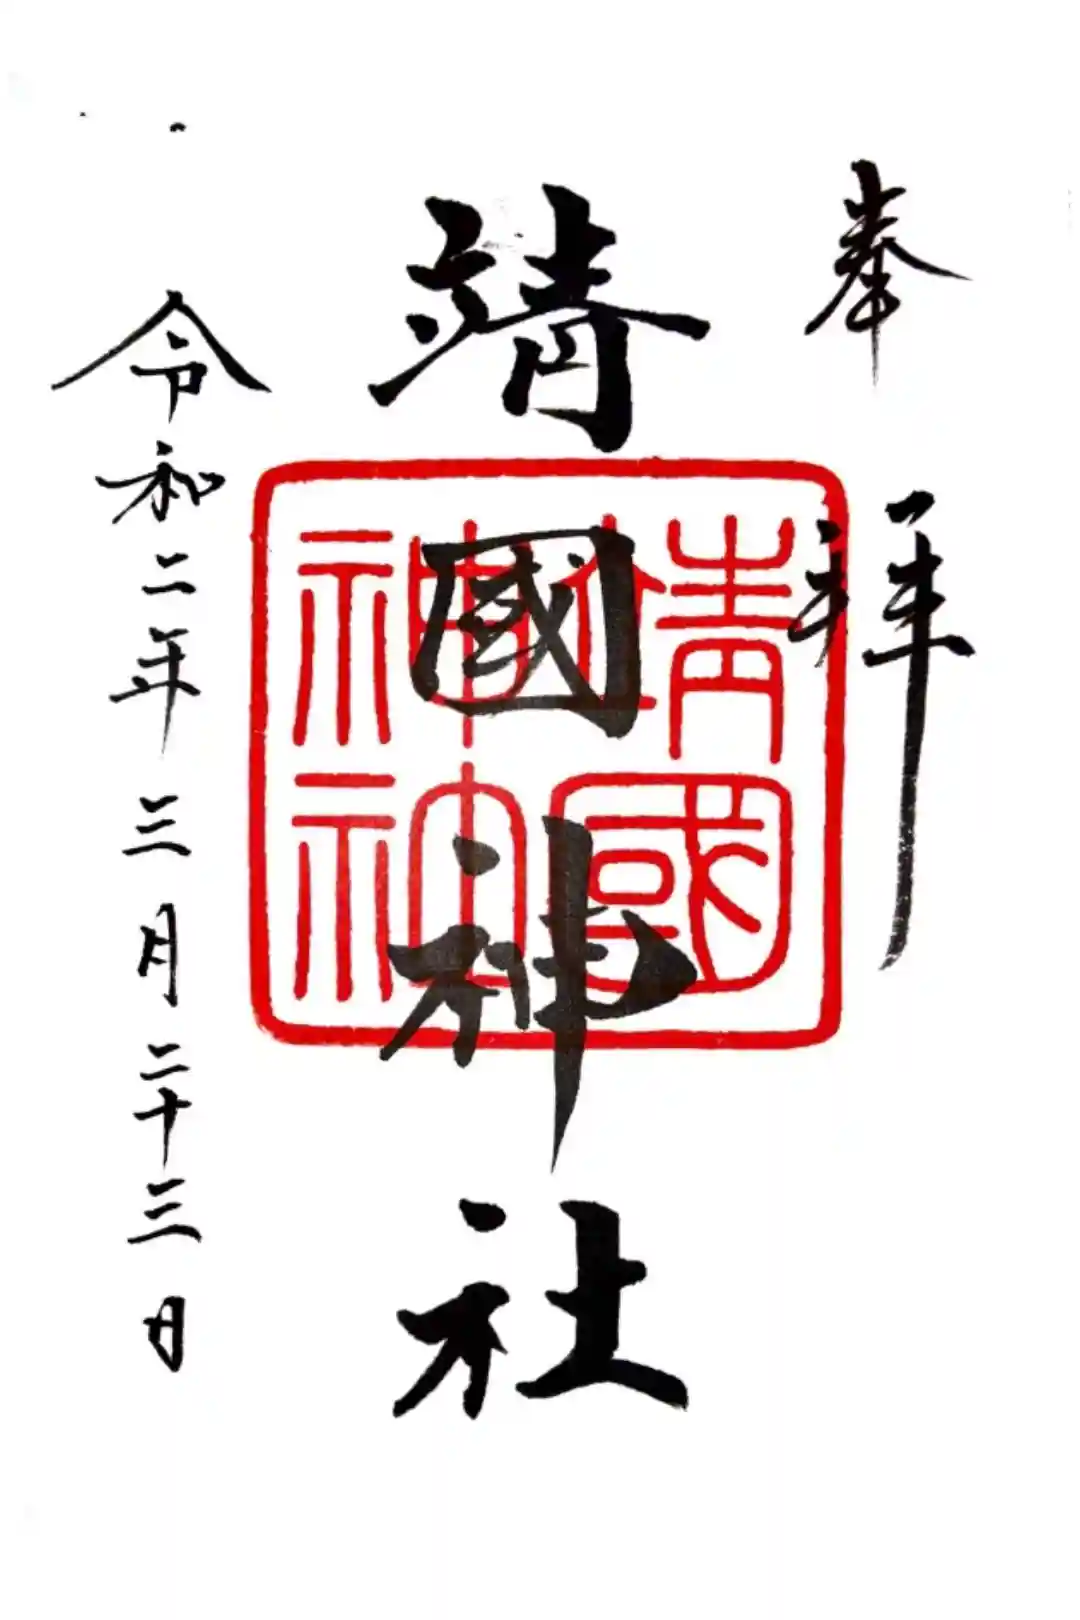 奉拝
靖國神社
靖國
神社
令和二年三月二十三日